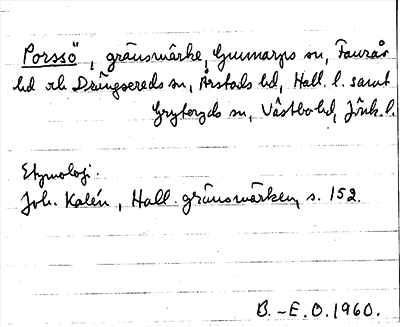 Porssö, gränsmärke, Gunnarps sn, Faurås
hd och Drängsereds sn, Årstads hd, Hall. l. samt
Gryteryds sn, Västbo hd, Jönk. l.
Etymologi.
Joh. Kalén, Hall. gränsmärken, s. 152.
B.-E.O. 1960.